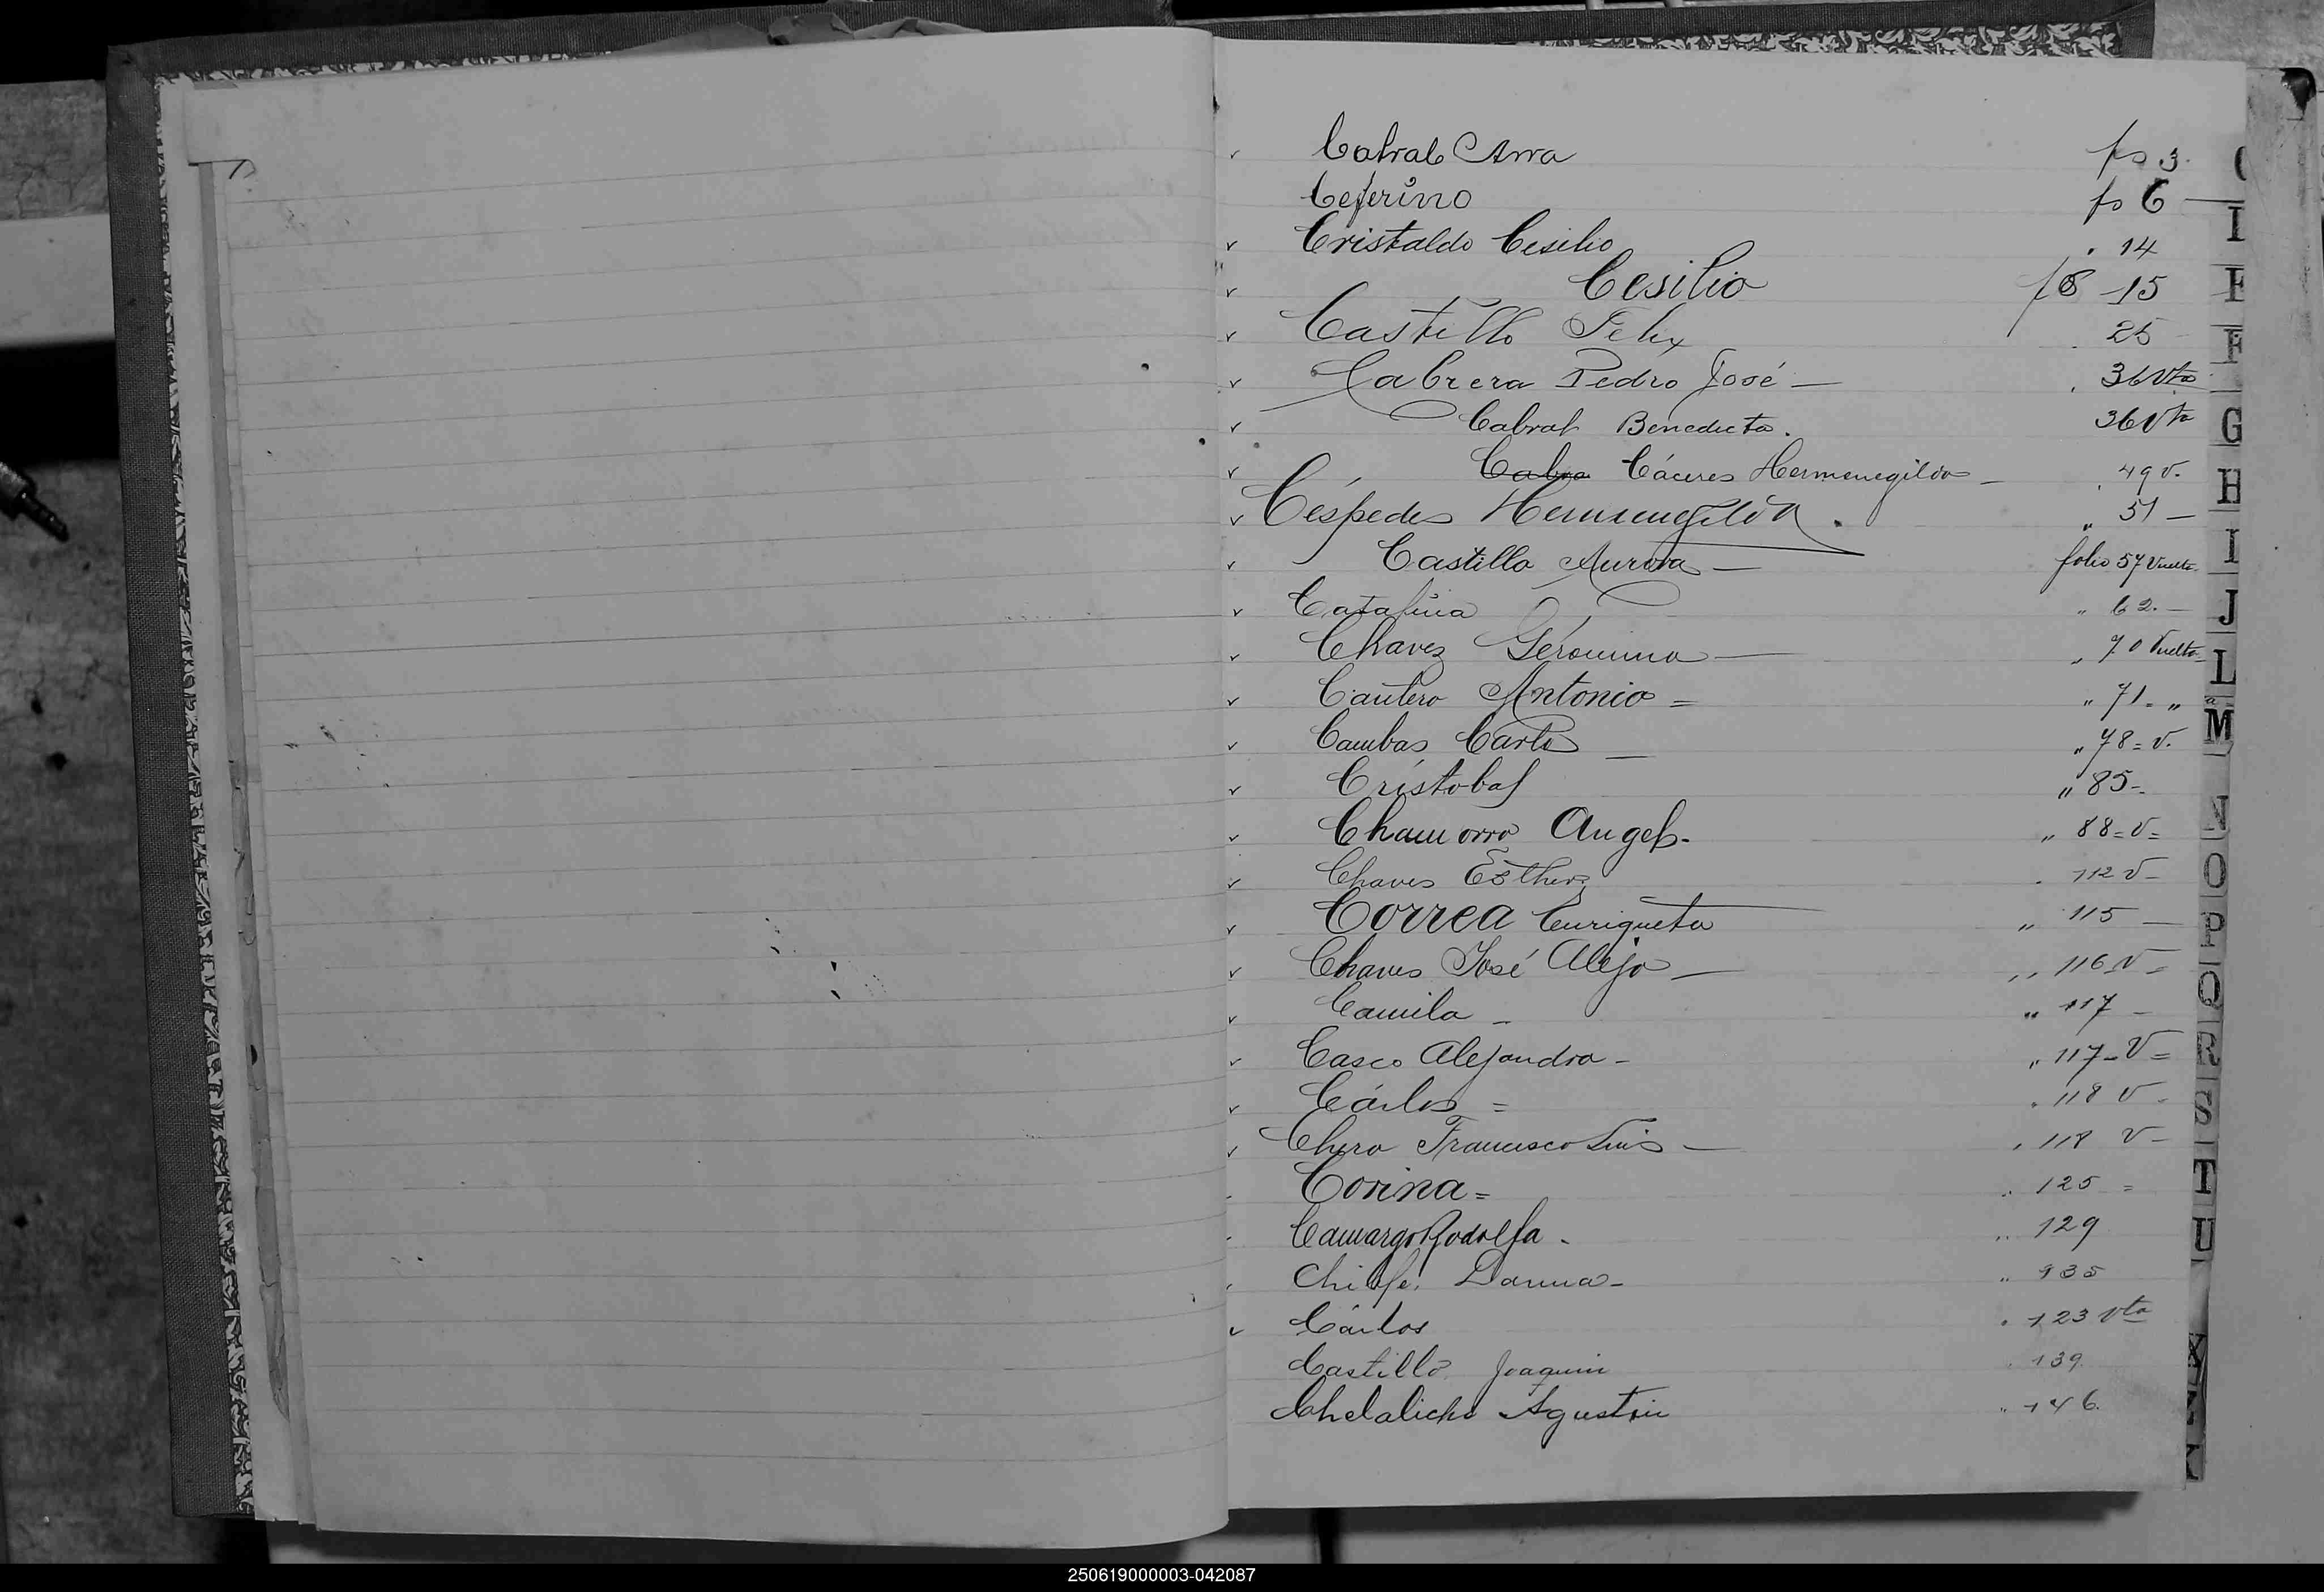 Cabral Ana fs 3.
Ceferino fs 6
Cristaldo Cesilio . 14
Cesilio fs 15
Castillo Felix . 25
Cabrera Pedro José — . 36 Vta
Cabral Benedicta. 36 Vta
Cabra Cáceres Hermenegilda — . 49 v.
Céspedes Hermenegilda . „ 51 —
Castillo Aurora — folio 57 Vuelto
Catalina „ 62. —
Chavez Gerónima — „ 70 Vuelto
Antonio = „ 71 = „
Cambas Carlo — „ 78 = v.
Cristobal „ 85 -
Chamorro Angel - „ 88 = V =
Chaves Esther . 112 V -
Correa Enriqueta „ 115 —
Chaves José Alejo — „ 116 V =
Camila - „ 117 -
Casco Alejandra - „ 117 - V =
Cárlos = . 118 V -
Francisco Luis — . 118 V -
Corina = „ 125 =
Camargo Rodolfa . „ 129
Cárlos . 123 Vta
Castillo Joaquin . 139.
Agustin „ 146.
F
G
H
I
J
L
M
N
O
P
Q
R
S
T
U
250619000003-042087